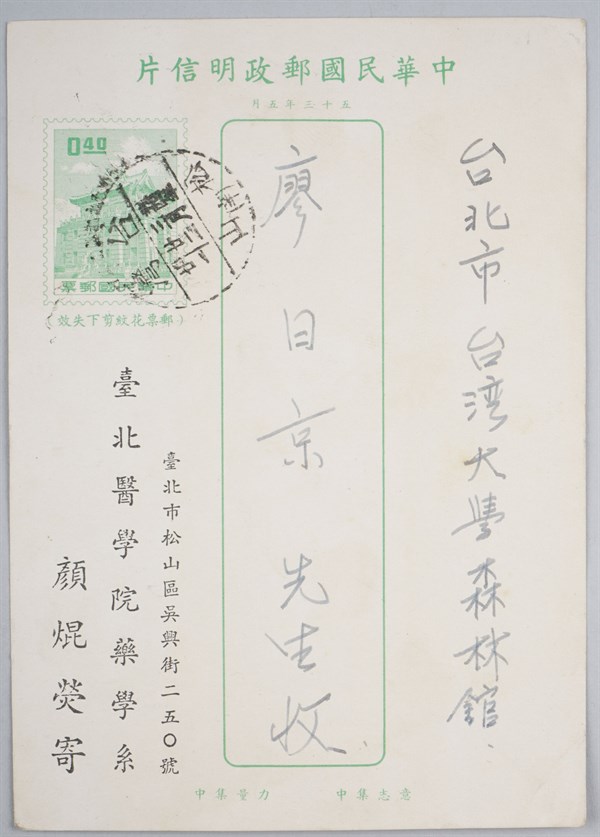 中華民國郵政明信片
五十三年五月
台北市台湾大學森林館
廖日京先生收
0.40
中華民國郵票
(郵票花紋剪下失效)
臺北市松山區吳興街二五〇號
臺北醫學院藥學系
顏焜熒寄
意志集中 力量集中